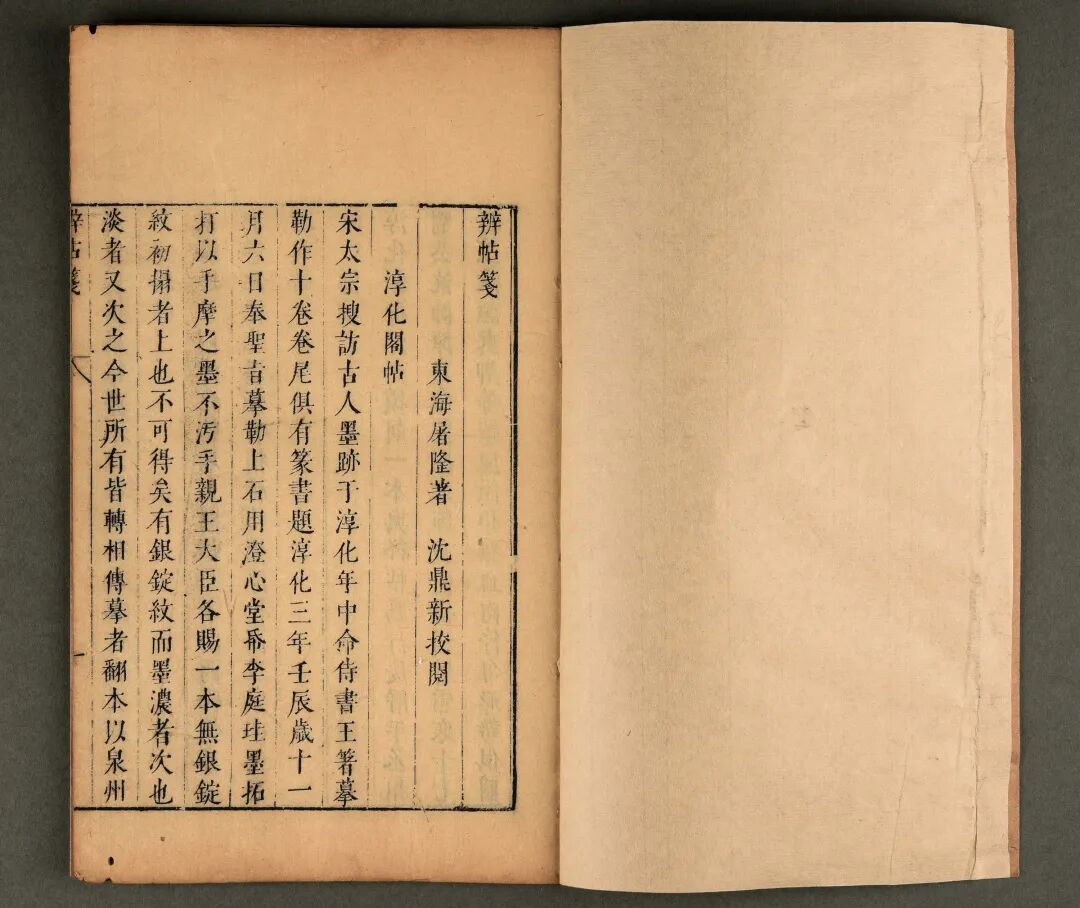 辨帖箋
東海屠隆著　沈鼎新挍閱
淳化閣帖
宋太宗搜訪古人墨跡于淳化年中命侍書王著摹
勒作十卷卷尾俱有篆書題淳化三年壬辰歲十一
月六日奉聖旨摹勒上石用澄心堂帋李庭珪墨拓
打以手摩之墨不污手親王大臣各賜一本無銀錠
紋初搨者上也不可得矣有銀錠紋而墨濃者次也
淡者又次之今世所有皆轉相傳摹者翻本以泉州
辨帖箋